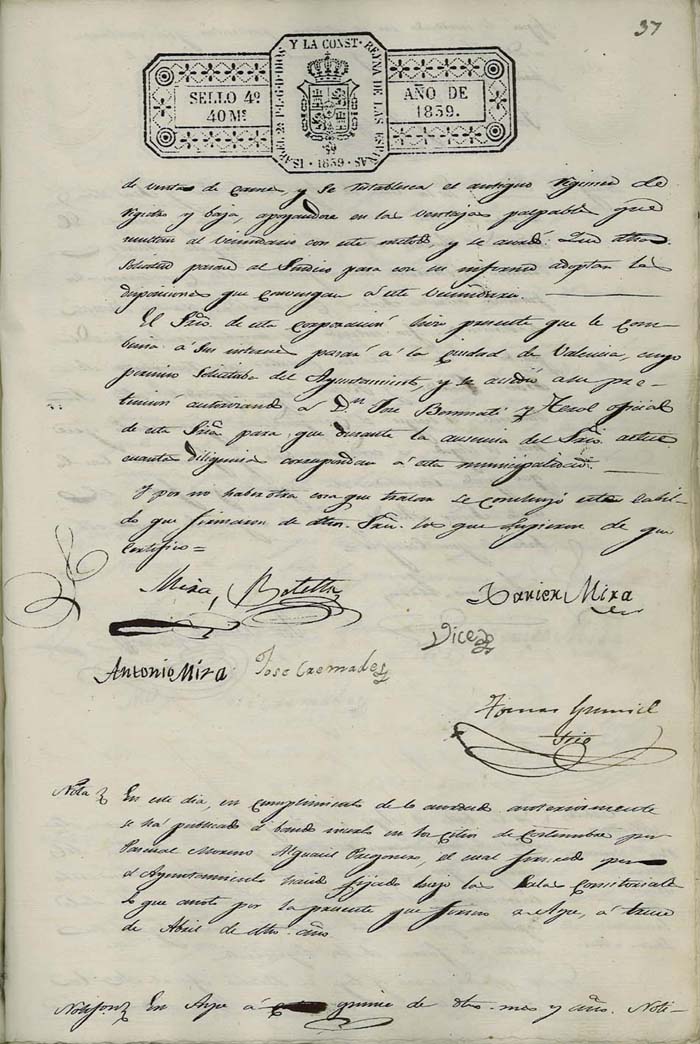 37
ISABEL 2ª P. L. G. D. DIOS Y LA CONST. REYNA DE LAS ESPAÑAS
SELLO 4º
40 Ms
AÑO DE
1839.
1839
de ventas de carne, y se restablesca el antiguo regimen de
y baja, apoyandose en las ventajas palpables que
resultan al vecindario con este metodo, y se acordó: Que dha.
solicitud pasase al Sindico para con su informe adoptar las
disposiciones que convengan á este vecindario.
El Srio. de esta corporacion hizo presente que le con-
á sus intereses pasar á la Ciudad de Valencia, cuyo
permiso solicitaba del Ayuntamiento, y se accedió a su pre-
tencion autorizando á Dn. José Bonmati y Terol oficial
de esta Sria para que durante la ausencia del Srio. actue
cuantas diligencias correspondan á esta municipalidad.
Y por no haber otra cosa que tratar se concluyó este cabil-
do que firmaron de dhos. Sres. los que supieron de que
certifico=
Mira, Botella
Xavier Mira
Vicedo
Antonio Mira
Jose Cremades
Tomas
Srio
Nota
En este dia, en cumplimiento de lo acordado anteriormente
se há publicado el bando en los citios de costumbre por
Pascual Moreno Alguacil Pregonero, el cual firmado por
el Ayuntamiento fijado bajo las Salas Consistoriales
lo que anoto por la presente que firmo en Aspe, á trece
de Abril de dho. año.
En Aspe á quince de dho. mes y año. Noti-